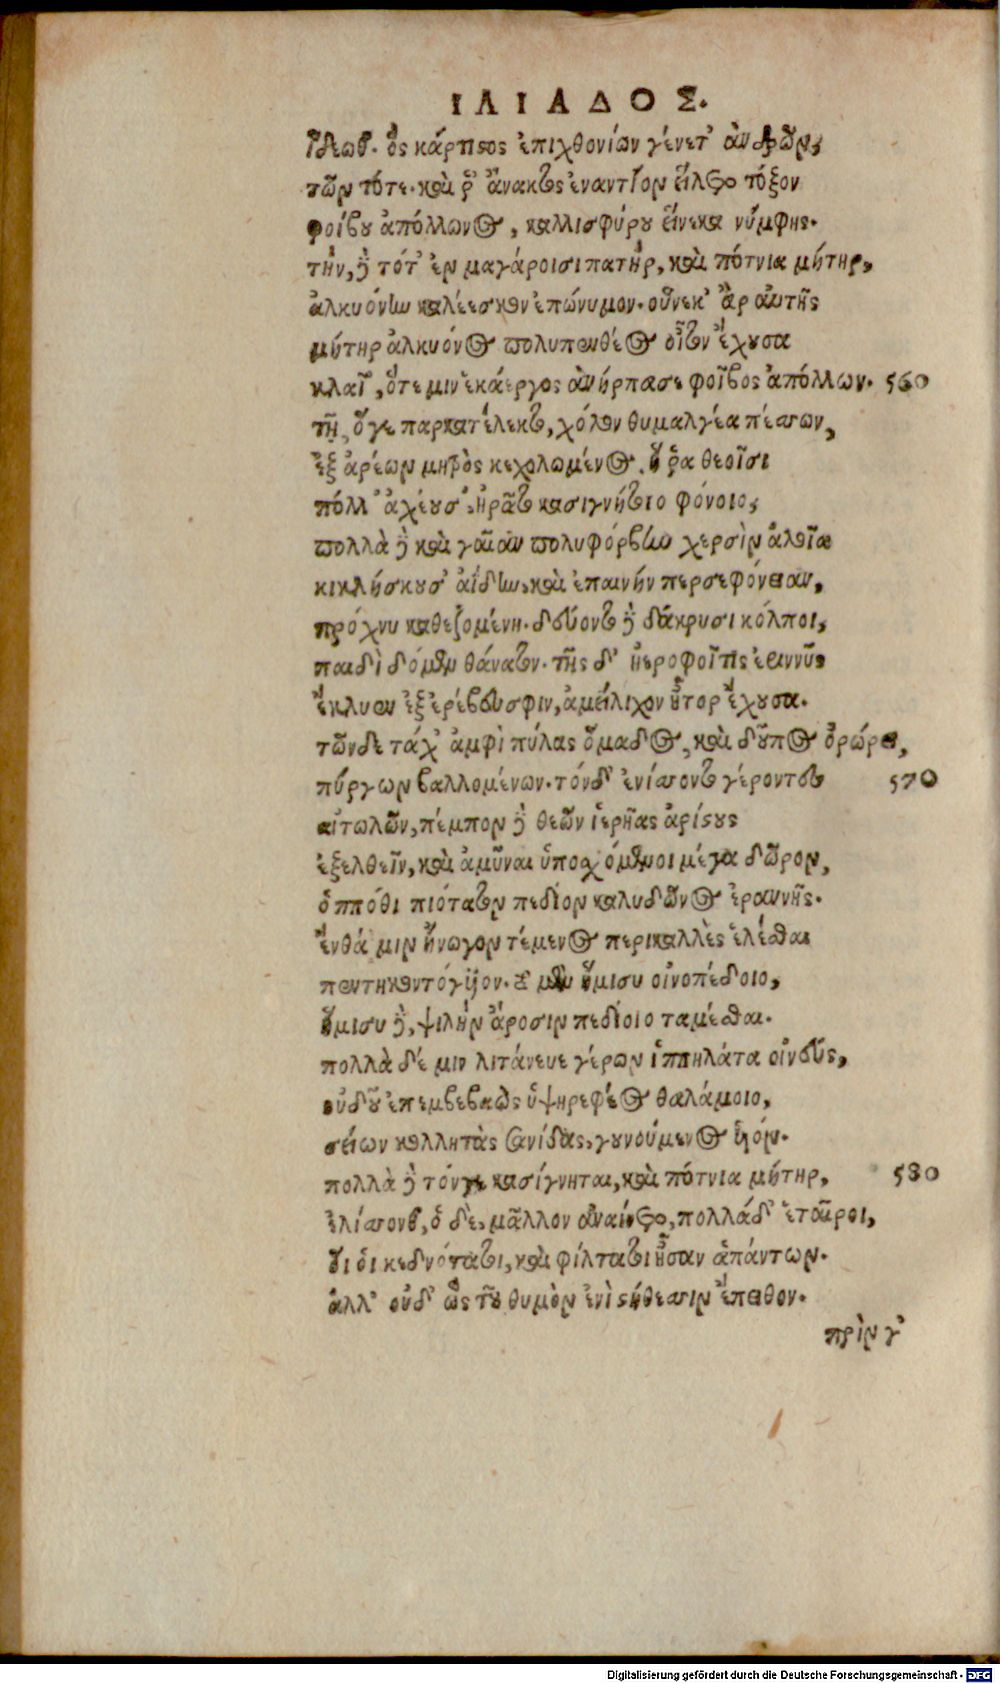 ΙΛΙΑΔΟΣ.
Ἴδεω θ'. ὃς κάρτιστος ἐπιχθονίων γένετ' ἀνδρῶν,
τῶν τότε. καὶ ῥ' ἄνακτος ἐναντίον εἵλετο τόξον
φοίβου ἀπόλλωνος, καλλισφύρου εἵνεκα νύμφης.
τὴν, δὲ τότ' ἐν μαγάροισι πατὴρ, καὶ πότνια μήτηρ,
ἀλκυόνην καλέεσκον ἐπώνυμον. οὕνεκ' ἄρ αὐτῆς
μήτηρ ἀλκυόνος πολυπενθέος οἶτον ἔχουσα
κλαῖ', ὅτε μιν ἑκάεργος ἀνήρπασε φοῖβος ἀπόλλων. 560
τῇ, ὅγε παρκατέλεκτο, χόλον θυμαλγέα πέσσων,
ἐξ ἀρέων μητρὸς κεχολωμένος, ἥ ῥα θεοῖσι
πόλλ' ἀχέουσ' ἠρᾶτο κασιγνήτοιο φόνοιο,
πολλὰ δὲ καὶ γαῖαν πολυφόρβην χερσὶν ἀλοῖα
κικλήσκουσ' ἀΐδην, καὶ ἐπαινὴν περσεφόνειαν,
πρόχνυ καθεζομένη. δεύοντο δὲ δάκρυσι κόλποι,
παιδὶ δόμεν θάνατον. τῆς δ' ἠεροφοῖτις ἐριννὺς
ἔκλυεν ἐξ ἐρέβευσφιν, ἀμείλιχον ἦτορ ἔχουσα.
τῶνδε τάχ' ἀμφὶ πύλας ὅμαδος, καὶ δοῦπος ὀρώρει,
πύργων βαλλομένων. τόνδ' ἐλίσσοντο γέροντες 570
αἰτωλῶν, πέμπον δὲ θεῶν ἱερῆας ἀρίστους
ἐξελθεῖν, καὶ ἀμῦναι ὑποσχόμενοι μέγα δῶρον,
ὁππόθι πιότατον πεδίον καλυδῶνος ἐραννῆς.
ἔνθά μιν ἤνωγον τέμενος περικαλλὲς ἑλέσθαι
πεντηκοντόγυον. τὸ μὲν ἥμισυ οἰνοπέδοιο,
ἥμισυ δὲ, ψιλὴν ἄροσιν πεδίοιο ταμέσθαι.
πολλὰ δέ μιν λιτάνευε γέρων ἱππηλάτα οἰνεύς,
οὐδοῦ ἐπεμβεβαὼς ὑψηρεφέος θαλάμοιο,
σείων κολλητὰς σανίδας, γουνούμενος υἱόν.
πολλὰ δὲ τόνγε κασίγνηται, καὶ πότνια μήτηρ, 580
ἐλίσσονθ, ὁ δὲ, μᾶλλον ἀναίνετο, πολλάδ' ἑταῖροι,
οἵ οἱ κεδνότατοι, καὶ φίλτατοι ἦσαν ἁπάντων.
ἀλλ' οὐδ' ὣς τοῦ θυμὸν ἐνὶ στήθεσσιν ἔπειθον.
πρὶν γ'
Digitalisierung gefördert durch die Deutsche Forschungsgemeinschaft - DFG